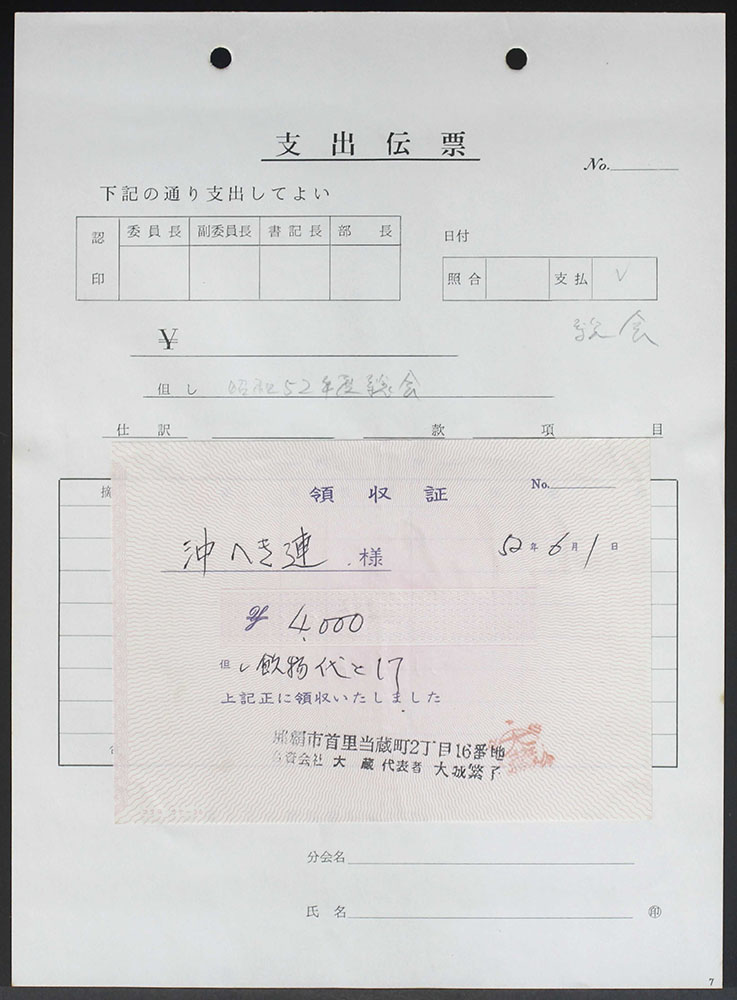 支出伝票
No.
下記の通り支出してよい
認印 委員長 副委員長 書記長 部長
日付
照合 支払 ✓
総会
¥
但し 昭和52年度総会
仕訳 款 項 目
摘
領収証
No.
沖へき連 様
52年6月1日
¥ 4,000
但し飲物代として
上記正に領収いたしました
那覇市首里当蔵町2丁目16番地
合資会社 大蔵 代表者 大城繁子
分会名
氏名 ㊞
7